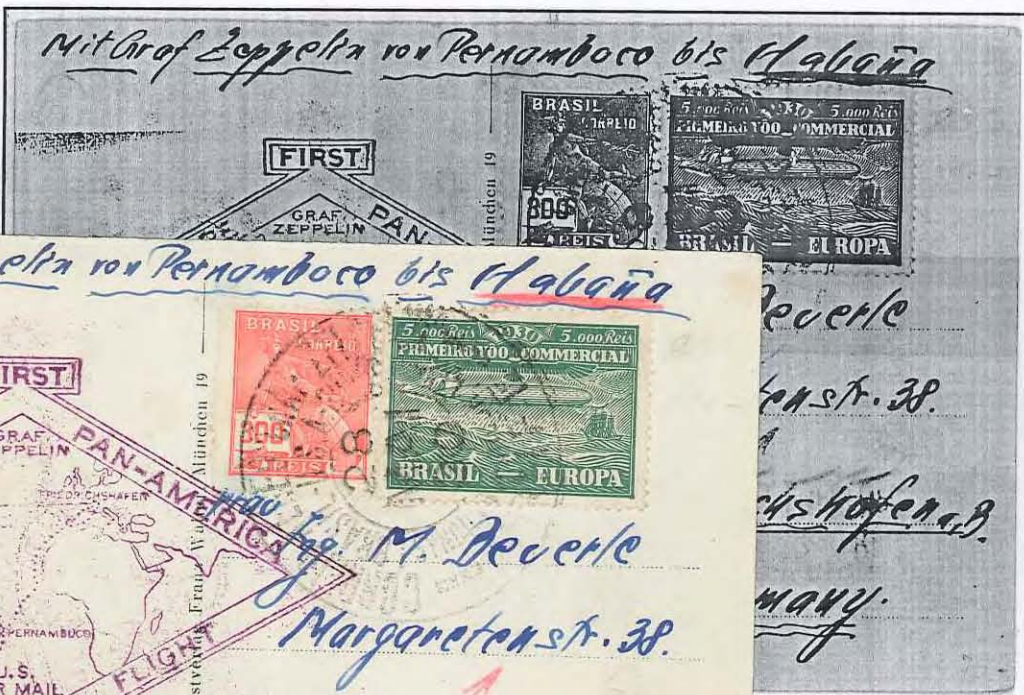 Mit Graf Zeppelin von Pernamboco bis Habaña
FIRST
GRAF
ZEPPELIN
PAN-
München 19
BRASIL
CORREIO
300
REIS
5.000 Reis 1930 5.000 Reis
PRIMEIRO VOO COMMERCIAL
BRASIL — EUROPA
Beverle
tenstr. 38.
chshafen a. B.
many.
elin von Pernamboco bis Habaña
IRST
GRAF
PPELIN
PAN-AMERICA
FRIEDRICHSHAFEN
PERNAMBUCO
U.S.
R MAIL
FLIGHT
München 19
BRASIL
CORREIO
300
REIS
5.000 Reis 1930 5.000 Reis
PRIMEIRO VOO COMMERCIAL
BRASIL — EUROPA
Frau
Ing. M. Beverle
Margaretenstr. 38.